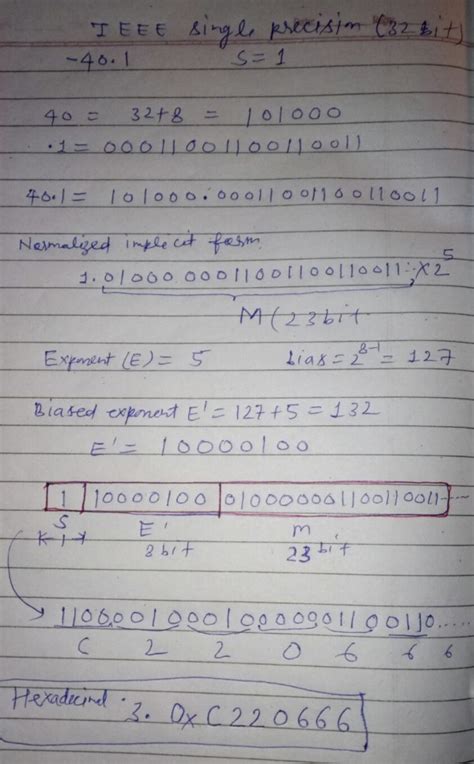 IEEE single precision (32 bit)
-40.1 S=1
40 = 32+8 = 101000
.1 = 000110011001100110011
40.1 = 101000.000110011001100110011
Normalized implicit form
1.01000000110011001100110011...×2^5
M (23 bit
Exponent (E) = 5 bias = 2^8-1 = 127
Biased exponent E' = 127+5 = 132
E' = 10000100
1 10000100 01000000110011001100110011-...
S E' M
K 1 → 8 bit 23 bit
110000100010000001100110.....
C 2 2 0 6 6 6
Hexadecimal: 3. 0xC220666